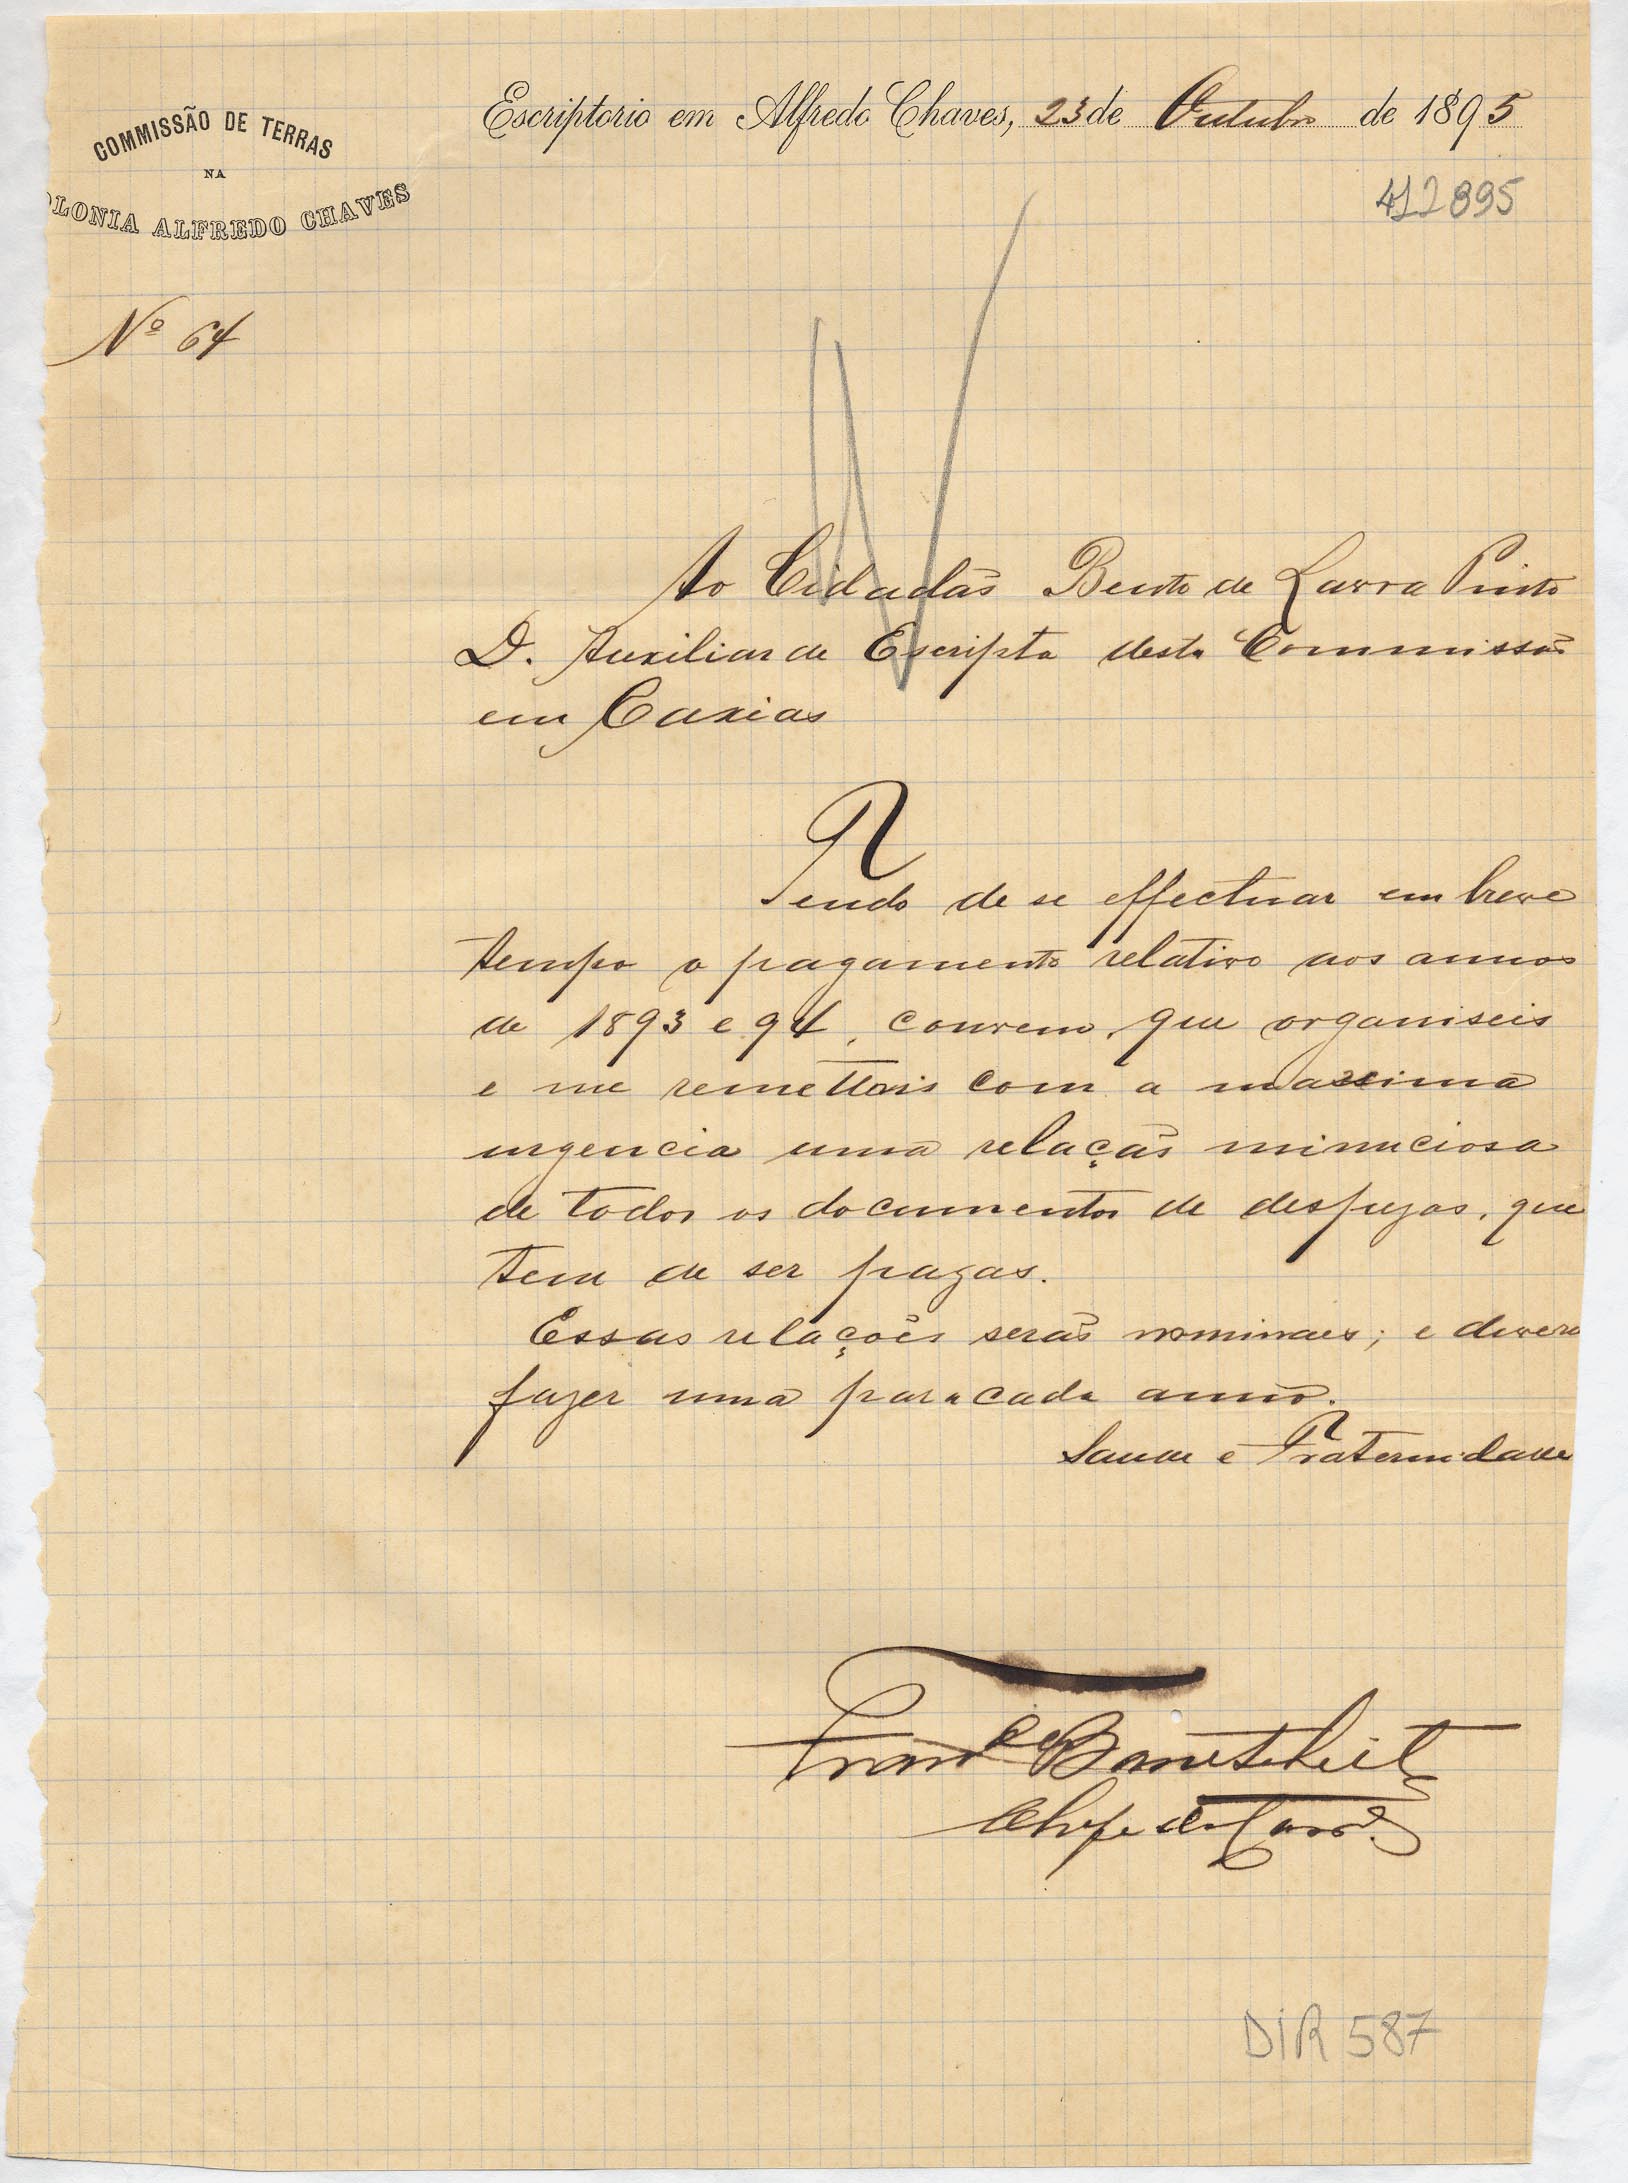 COMMISSÃO DE TERRAS
NA
OLONIA ALFREDO CHAVES
Escriptorio em Alfredo Chaves, 23 de Outubro de 1895
412895
Nº 64
Ao Cidadão Bento de Lavra Pinto
D. Auxiliar de Escripta desta Commissão
em Caxias
Tendo de se effectuar em breve
tempo o pagamento relativo aos annos
de 1893 e 94, convem, que organiseis
e me remettais com a maxima
urgencia uma relação minuciosa
de todos os documentos de despezas, que
tem de ser pagas.
Essas relações serão nominaes; e devera
fazer uma para cada anno.
Saude e Fraternidade
Franco
Chefe da
DIR 587